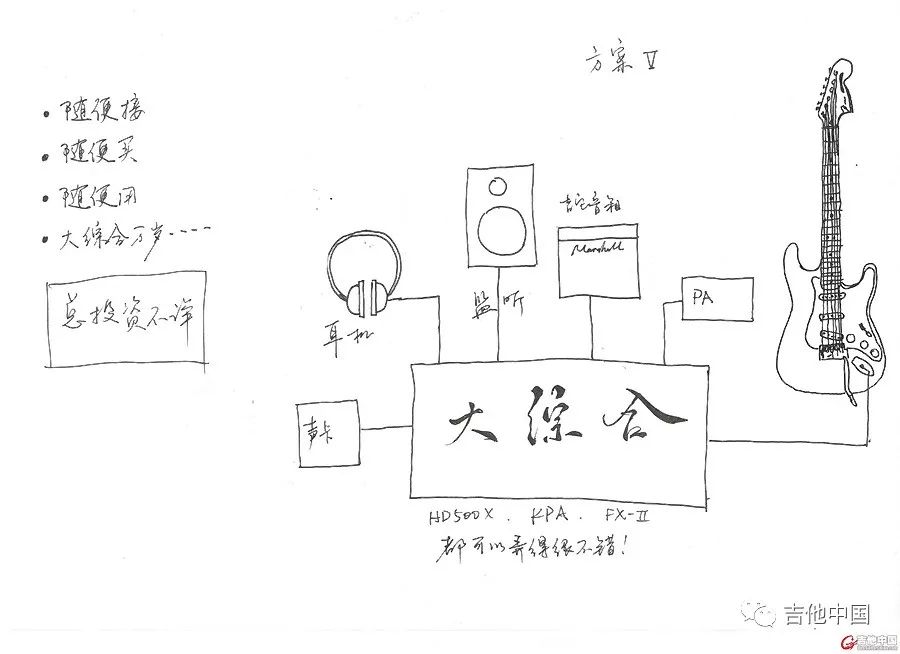 方案 V
• 随便接
• 随便买
• 随便用
• 大综合万岁····
总投资不详
耳机
监听
吉它音箱
Marshall
PA
声卡
大综合
HD500X. KPA. FX-II
都可以弄得很不错!
吉他中国
吉他中国